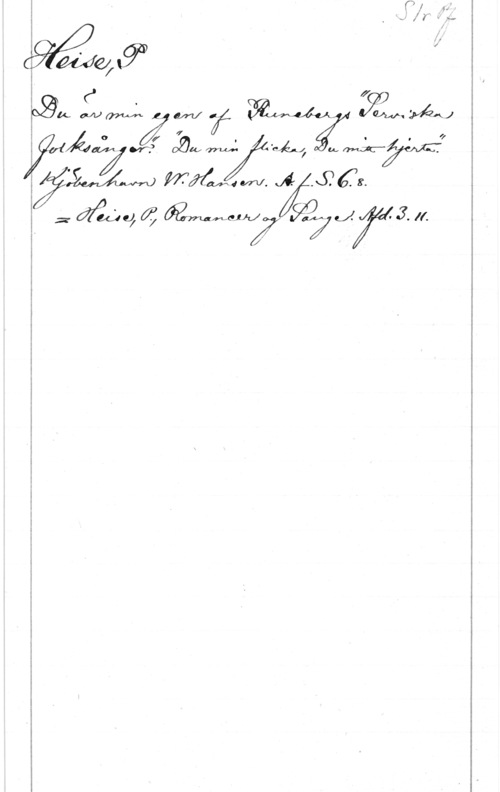 Str Pf
Heise, P
Du är min egen af Runebergs "Serviska
folksånger". "Du min flicka, Du mitt hjerta".
Kjöbenhavn W. Hansen. A f. S. 6 s.
= Heise, P., Romancer og Sange. Afd. 3. 11.